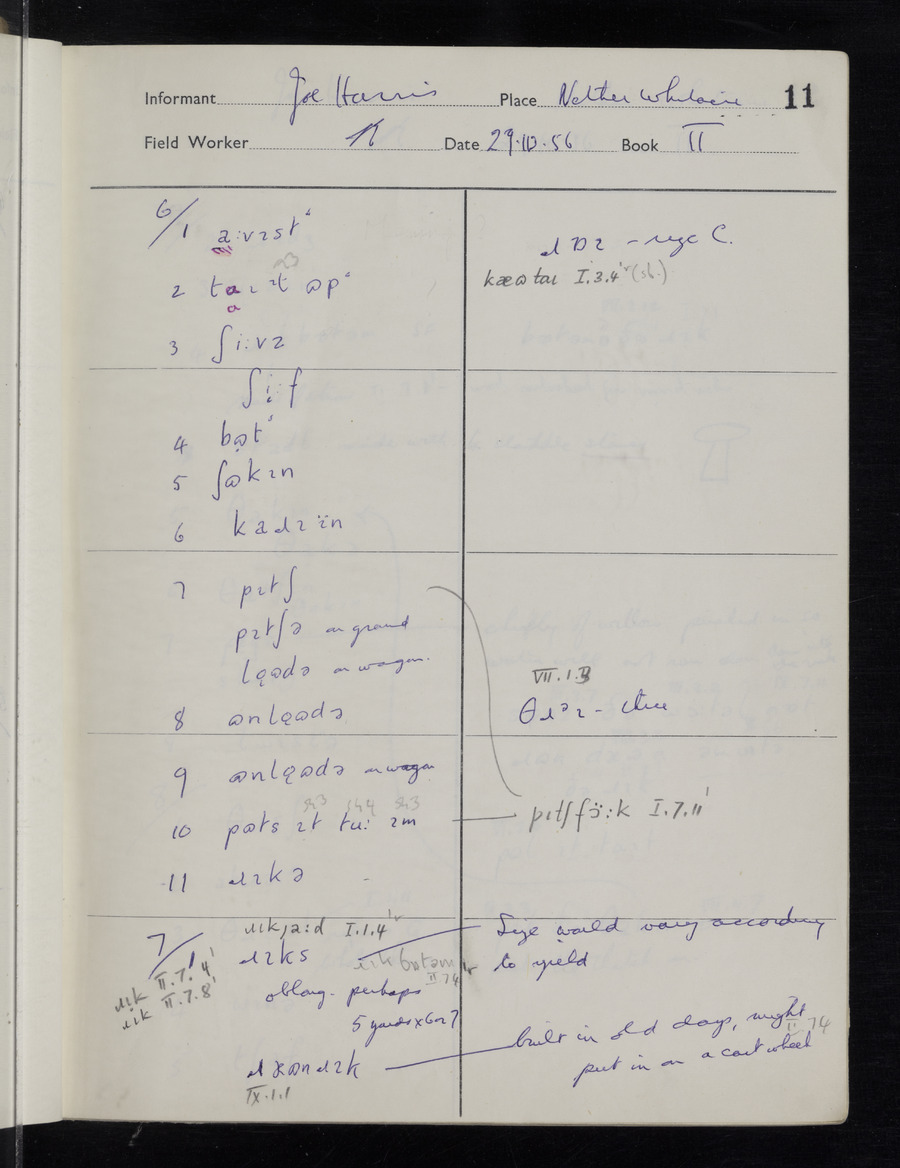 Informant Joe Harris Place Nether Whitacre 11
Field Worker Date 29.10.56 Book II
6/1 a:vɪst
2 taɪɪt ɷp
kæɷtaɪ I.3.4 (sb.)
3 ʃi:vz
ʃi:f
4 bɷt
5 ʃɷkɪn
6 kaɹɪïn
7 pɪtʃ
pɪtʃə on ground
lǫɷdə on wagon.
VII.1.3
8 ɷnlǫɷdə
9 ɷnlǫɷdə on wagon
10 pɷts ɪt tu: ɪm
pɪtʃfɔ̈:k I.7.11
11 ɹɪkə
7/1 ɹɪkja:d I.1.4
ɹɪk II.7.4
ɹɪk II.7.8
ɹɪks
ɹɪk bɷtəm II.7.4
Size would vary according
to yield
oblong. perhaps
5 yards x 6 or 7
built in old days, might
put in on a cart wheel
IX.1.1